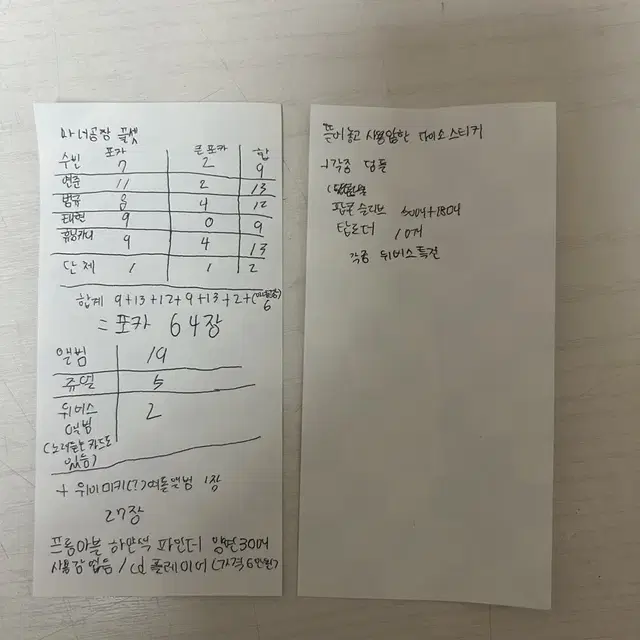 마녀공장 풀셋
포카 큰포카 합
수빈 7 2 9
연준 11 2 13
범규 8 4 12
태현 9 0 9
휴닝카이 9 4 13
단체 1 1 2
합계 9+13+12+9+13+2+
6
= 포카 64장
앨범 19
쥬얼 5
위버스 앨범 2
(노래듣는카드도
있음)
+ 위이미키(?)여돌앨범 1장
27장
프롬아블 하얀색 파인더 양면300매
사용감 없음 / cd 플레이어 (가격 6만원)
뜯어놓고 사용안한 다이소 스티커
+ 각종 덤들
팝콘 슬리브 500매+180매
탑로더 10개
각종 위버스특전